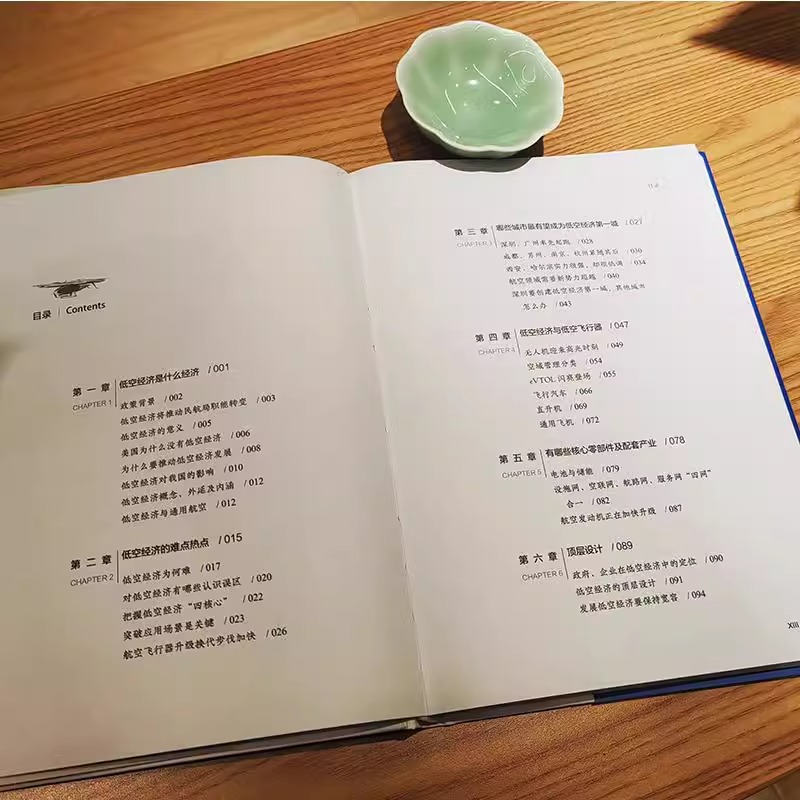 目录 | Contents
第一章 低空经济是什么经济 /001
CHAPTER 1 政策背景 /002
低空经济将推动民航局职能转变 /003
低空经济的意义 /005
美国为什么没有低空经济 /006
为什么要推动低空经济发展 /008
低空经济对我国的影响 /010
低空经济概念、外延及内涵 /012
低空经济与通用航空 /012
第二章 低空经济的难点热点 /015
CHAPTER 2 低空经济为何难 /017
对低空经济有哪些认识误区 /020
把握低空经济“四核心” /022
突破应用场景是关键 /023
航空飞行器升级换代步伐加快 /026
目录
第三章 哪些城市最有望成为低空经济第一城 /027
CHAPTER 3 深圳、广州率先起跑 /028
成都、苏州、南京、杭州紧随其后 /030
西安、哈尔滨实力很强，却很低调 /034
航空领域需要新势力超越 /040
深圳要创建低空经济第一城，其他城市
怎么办 /043
第四章 低空经济与低空飞行器 /047
CHAPTER 4 无人机迎来高光时刻 /049
空域管理分类 /054
eVTOL 闪亮登场 /055
飞行汽车 /066
直升机 /069
通用飞机 /072
第五章 有哪些核心零部件及配套产业 /078
CHAPTER 5 电池与储能 /079
设施网、空联网、航路网、服务网“四网”
合一 /082
航空发动机正在加快升级 /087
第六章 顶层设计 /089
CHAPTER 6 政府、企业在低空经济中的定位 /090
低空经济的顶层设计 /091
发展低空经济要保持宽容 /094
XIII